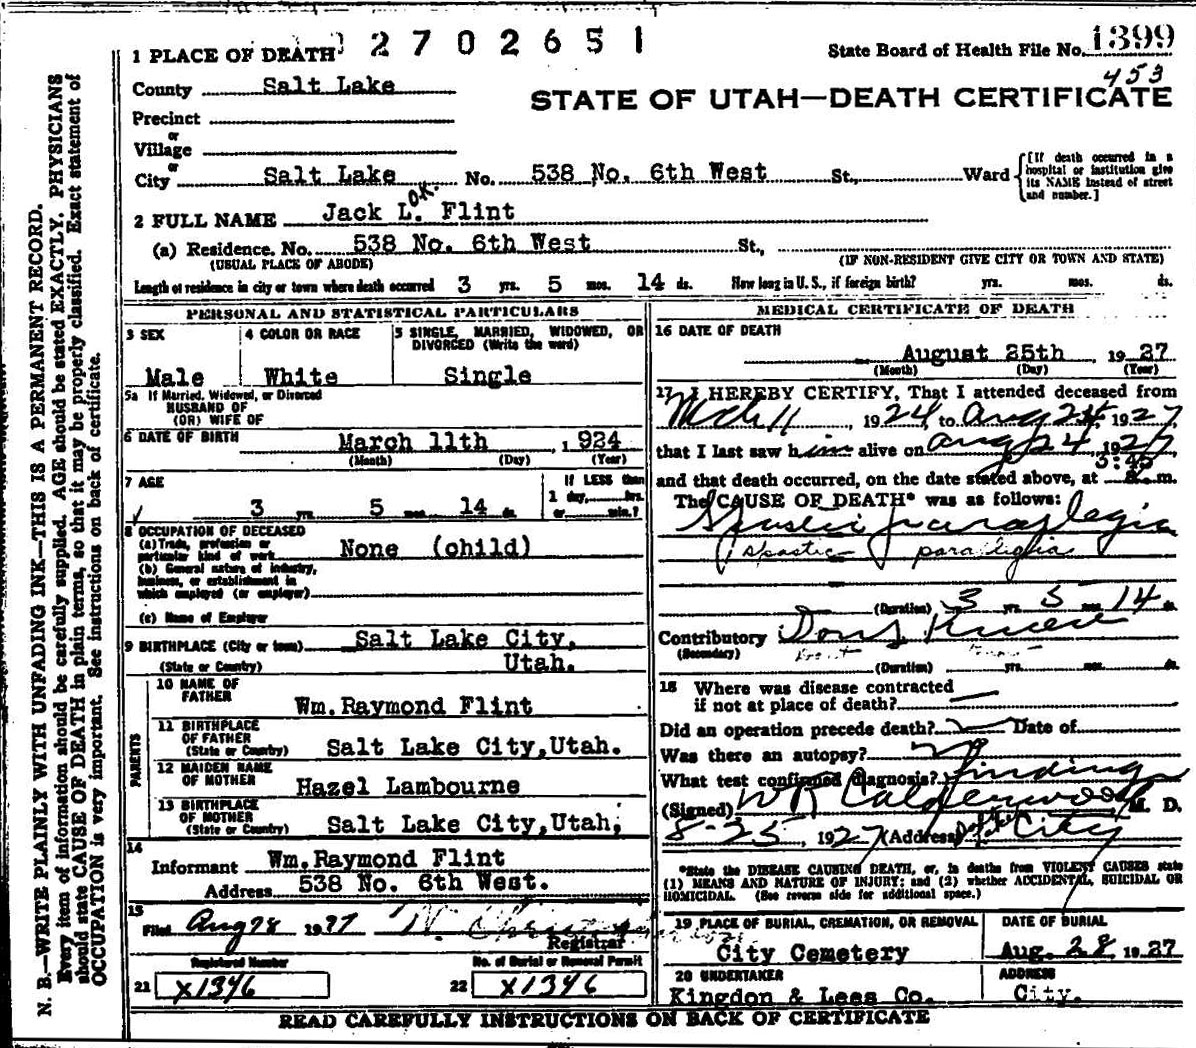 2702651
State Board of Health File No. 1399
453
STATE OF UTAH—DEATH CERTIFICATE
1 PLACE OF DEATH
County Salt Lake
Precinct
or
Village
or
City Salt Lake No. 538 No. 6th West St., Ward
[If death occurred in a hospital or institution give its NAME instead of street and number.]
O.K.
2 FULL NAME Jack L. Flint
(a) Residence. No. 538 No. 6th West St.,
(USUAL PLACE OF ABODE) (IF NON-RESIDENT GIVE CITY OR TOWN AND STATE)
Length of residence in city or town where death occurred 3 yrs. 5 mos. 14 ds. How long in U. S., if foreign birth? yrs. mos. ds.
PERSONAL AND STATISTICAL PARTICULARS
3 SEX
Male
4 COLOR OR RACE
White
5 SINGLE, MARRIED, WIDOWED, OR
DIVORCED (Write the word)
Single
5a If Married, Widowed, or Divorced
HUSBAND OF
(OR) WIFE OF
6 DATE OF BIRTH March 11th 1924
(Month) (Day) (Year)
7 AGE
3 yrs. 5 mos. 14 ds.
If LESS than
1 day, hrs.
or min.?
8 OCCUPATION OF DECEASED
(a) Trade, profession or
particular kind of work None (child)
(b) General nature of industry,
business, or establishment in
which employed (or employer)
(c) Name of Employer
9 BIRTHPLACE (City or town) Salt Lake City,
(State or Country) Utah.
PARENTS
10 NAME OF
FATHER Wm. Raymond Flint
11 BIRTHPLACE
OF FATHER
(State or Country) Salt Lake City, Utah.
12 MAIDEN NAME
OF MOTHER Hazel Lambourne
13 BIRTHPLACE
OF MOTHER
(State or Country) Salt Lake City, Utah,
14
Informant Wm. Raymond Flint
Address 538 No. 6th West.
15
Filed Aug 28 1927
Registrar
Registered Number
21 X1346
No. of Burial or Removal Permit
22 X1346
MEDICAL CERTIFICATE OF DEATH
16 DATE OF DEATH
August 25th, 1927
(Month) (Day) (Year)
17 I HEREBY CERTIFY, That I attended deceased from
Mch 11, 1924, to Aug 24, 1927
that I last saw him alive on Aug 24, 1927
3:45
and that death occurred, on the date stated above, at a. m.
The CAUSE OF DEATH* was as follows:
Spastic paraplegia
spastic paraplegia
(Duration) 3 yrs. 5 mos. 14 ds.
Contributory Don't Know
(Secondary) Don't Know
(Duration) yrs. mos. ds.
18 Where was disease contracted
if not at place of death?
Did an operation precede death? Date of
Was there an autopsy?
What test confirmed diagnosis? findings
(Signed) W R Calderwood M. D.
8-25, 1927 (Address) City
*State the DISEASE CAUSING DEATH, or, in deaths from VIOLENT CAUSES state
(1) MEANS AND NATURE OF INJURY; and (2) whether ACCIDENTAL, SUICIDAL OR
HOMICIDAL. (See reverse side for additional space.)
19 PLACE OF BURIAL, CREMATION, OR REMOVAL
City Cemetery
DATE OF BURIAL
Aug. 28 1927
20 UNDERTAKER
Kingdon & Lees Co.
ADDRESS
City.
READ CAREFULLY INSTRUCTIONS ON BACK OF CERTIFICATE
N. B.—WRITE PLAINLY WITH UNFADING INK—THIS IS A PERMANENT RECORD.
Every item of information should be carefully supplied. AGE should be stated EXACTLY. PHYSICIANS
should state CAUSE OF DEATH in plain terms, so that it may be properly classified. Exact statement of
OCCUPATION is very important. See instructions on back of certificate.